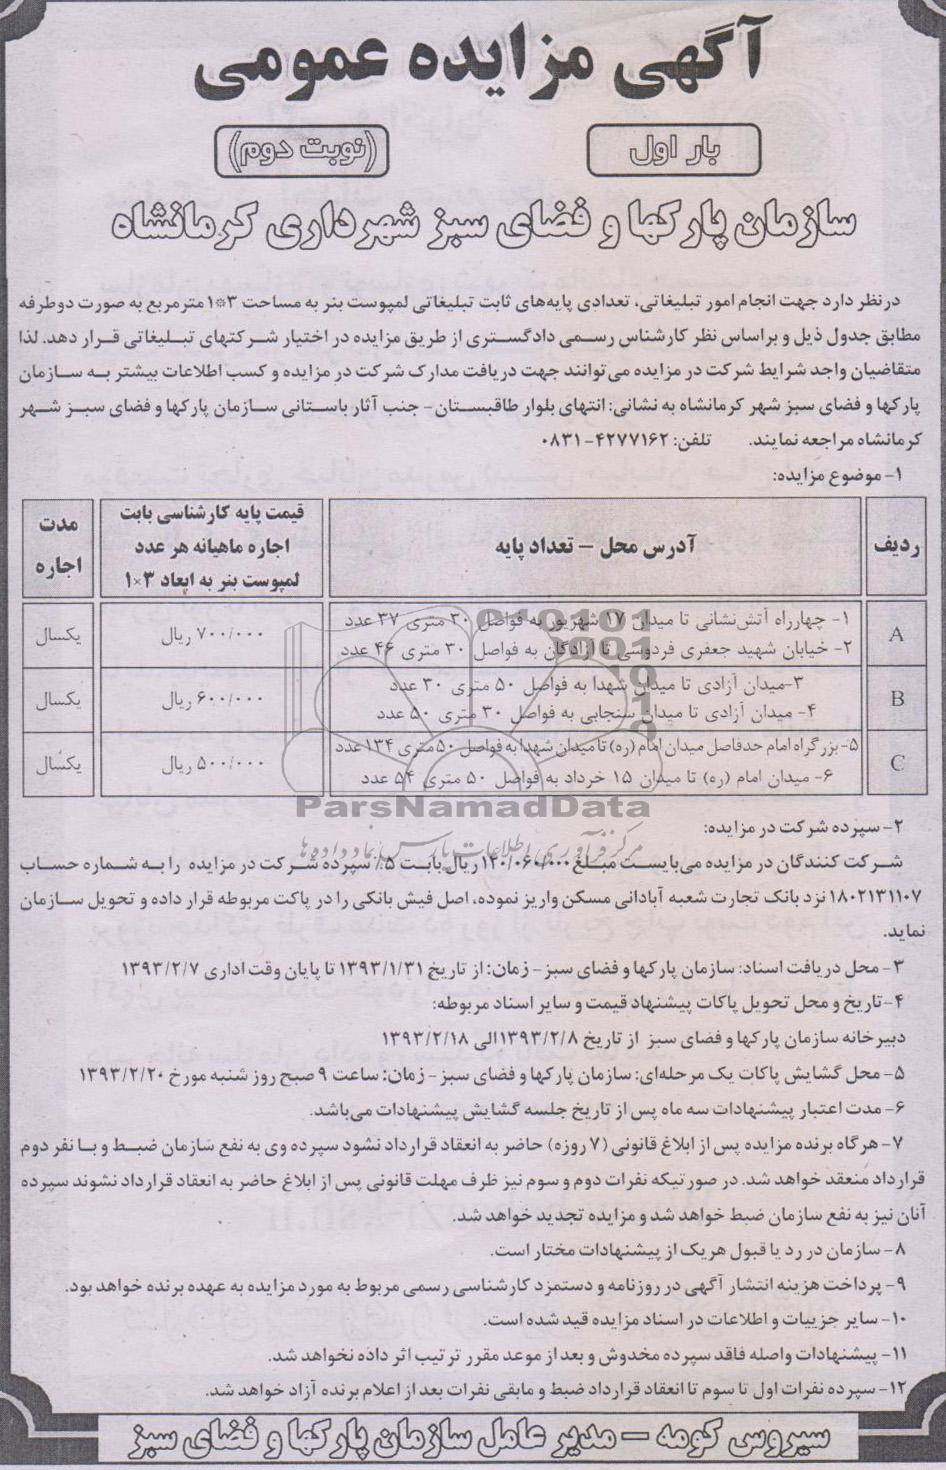 آگهی مزایده عمومی
بار اول
(نوبت دوم)
سازمان پارکها و فضای سبز شهرداری کرمانشاه
در نظر دارد جهت انجام امور تبلیغاتی، تعدادی پایه‌های ثابت تبلیغاتی لمپوست بنر به مساحت ۳*۱ مترمربع به صورت دوطرفه
مطابق جدول ذیل و براساس نظر کارشناس رسمی دادگستری از طریق مزایده در اختیار شرکتهای تبلیغاتی قرار دهد. لذا
متقاضیان واجد شرایط شرکت در مزایده می‌توانند جهت دریافت مدارک شرکت در مزایده و کسب اطلاعات بیشتر به سازمان
پارکها و فضای سبز شهر کرمانشاه به نشانی: انتهای بلوار طاقبستان- جنب آثار باستانی سازمان پارکها و فضای سبز شهر
کرمانشاه مراجعه نمایند. تلفن: ۴۲۷۷۱۶۲-۰۸۳۱
۱- موضوع مزایده:
ردیف
آدرس محل – تعداد پایه
قیمت پایه کارشناسی بابت
اجاره ماهیانه هر عدد
لمپوست بنر به ابعاد ۳×۱
مدت
اجاره
A
۱- چهارراه آتش‌نشانی تا میدان ۱۷ شهریور به فواصل ۳۰ متری ۳۷ عدد
۲- خیابان شهید جعفری فردوسی تا آزادگان به فواصل ۳۰ متری ۴۶ عدد
۷۰۰/۰۰۰ ریال
یکسال
B
۳-میدان آزادی تا میدان شهدا به فواصل ۵۰ متری ۳۰ عدد
۴- میدان آزادی تا میدان سنجابی به فواصل ۳۰ متری ۵۰ عدد
۶۰۰/۰۰۰ ریال
یکسال
C
۵- بزرگراه امام حدفاصل میدان امام (ره) تا میدان شهدا به فواصل ۵۰ متری ۱۳۴ عدد
۶- میدان امام (ره) تا میدان ۱۵ خرداد به فواصل ۵۰ متری ۵۴ عدد
۵۰۰/۰۰۰ ریال
یکسال
ParsNamadData
مرکز فرآوری اطلاعات پارس نماد داده ها
۲- سپرده شرکت در مزایده:
شرکت کنندگان در مزایده می‌بایست مبلغ ۱۲۰/۰۶۰/۰۰۰ ریال بابت ۵٪ سپرده شرکت در مزایده را به شماره حساب
۱۸۰۲۱۳۱۱۰۷ نزد بانک تجارت شعبه آبادانی مسکن واریز نموده، اصل فیش بانکی را در پاکت مربوطه قرار داده و تحویل سازمان
نماید.
۳- محل دریافت اسناد: سازمان پارکها و فضای سبز - زمان: از تاریخ ۱۳۹۳/۱/۳۱ تا پایان وقت اداری ۱۳۹۳/۲/۷
۴- تاریخ و محل تحویل پاکات پیشنهاد قیمت و سایر اسناد مربوطه:
دبیرخانه سازمان پارکها و فضای سبز از تاریخ ۱۳۹۳/۲/۸ الی ۱۳۹۳/۲/۱۸
۵- محل گشایش پاکات یک مرحله‌ای: سازمان پارکها و فضای سبز - زمان: ساعت ۹ صبح روز شنبه مورخ ۱۳۹۳/۲/۲۰
۶- مدت اعتبار پیشنهادات سه ماه پس از تاریخ جلسه گشایش پیشنهادات می‌باشد.
۷- هرگاه برنده مزایده پس از ابلاغ قانونی (۷ روزه) حاضر به انعقاد قرارداد نشود سپرده وی به نفع سازمان ضبط و با نفر دوم
قرارداد منعقد خواهد شد. در صورتیکه نفرات دوم و سوم نیز ظرف مهلت قانونی پس از ابلاغ حاضر به انعقاد قرارداد نشوند سپرده
آنان نیز به نفع سازمان ضبط خواهد شد و مزایده تجدید خواهد شد.
۸- سازمان در رد یا قبول هریک از پیشنهادات مختار است.
۹- پرداخت هزینه انتشار آگهی در روزنامه و دستمزد کارشناسی رسمی مربوط به مورد مزایده به عهده برنده خواهد بود.
۱۰- سایر جزییات و اطلاعات در اسناد مزایده قید شده است.
۱۱- پیشنهادات واصله فاقد سپرده مخدوش و بعد از موعد مقرر ترتیب اثر داده نخواهد شد.
۱۲- سپرده نفرات اول تا سوم تا انعقاد قرارداد ضبط و مابقی نفرات بعد از اعلام برنده آزاد خواهد شد.
سیروس کومه – مدیر عامل سازمان پارکها و فضای سبز